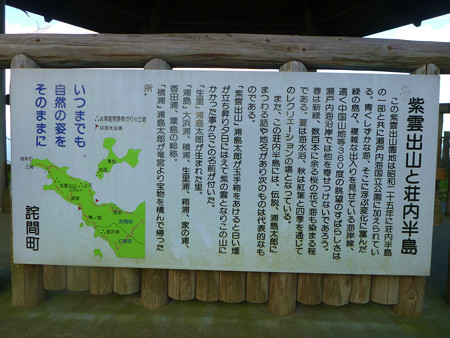 紫雲出山と荘内半島
この紫雲出山園地は昭和二十五年に荘内半島
の一部と共に瀬戸内海国立公園に加えられてい
る。青くしずかな海、そこに浮ぶ変化に富んだ
緑の島々、複雑な出入りを見せている海岸線、
遠く中国山地等360度の眺望のすばらしさは
瀬戸内海沿岸では他を寄せつけないであろう。
春は新緑、数百本に余る桜の花で島も染まる程
である。夏は海水浴、秋は紅葉と四季を通じて
のレクリエーションの場となっている。
また、この荘内半島には、伝説、浦島太郎に
まつわる話や地名があり次のものは代表的なも
のである。
「紫雲出山」浦島太郎が玉手箱をあけると白い煙
が立ち昇り夕日にはえて紫の雲となりこの山に
かかった事からこの名前が付いた。
「生里」浦島太郎が生まれた里。
「浦島」大浜浦、積浦、生里浦、箱浦、家の浦、
香田浦、粟島の総称。
「積浦」浦島太郎が竜宮より宝物を積んで帰った
所。
いつまでも
自然の姿を
そのままに
詫間町
は浦島物語のゆかりの土地
は海水浴場
粟島
紫雲出山